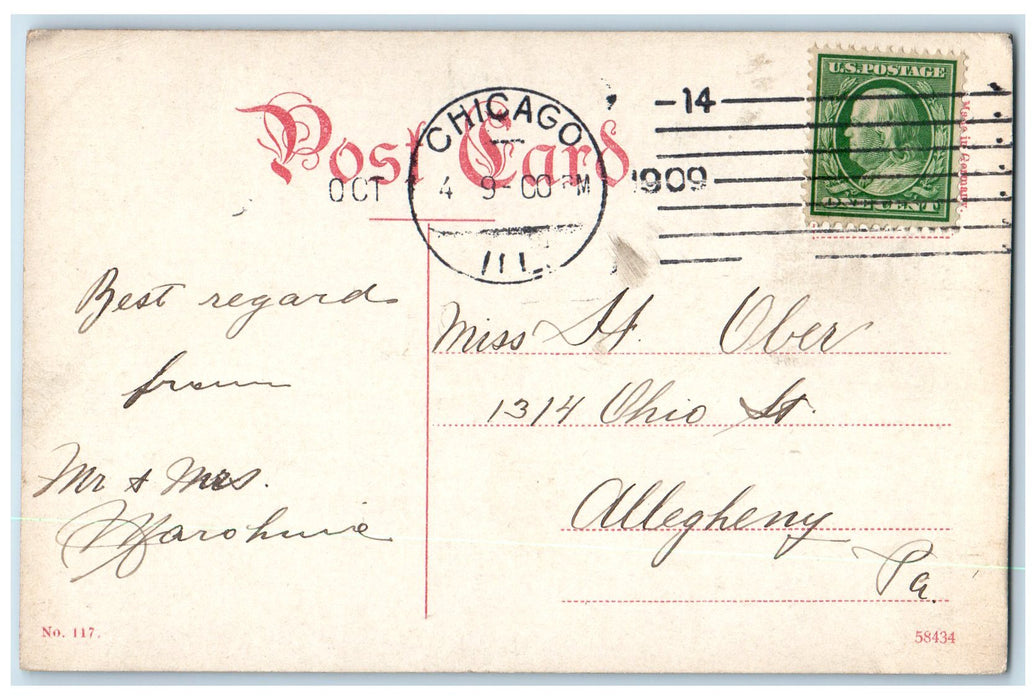 Post Card
CHICAGO
ILL.
OCT 14 9-00 PM
-14
1909
U.S. POSTAGE
ONE CENT
Made in Germany.
Best regards
from
Mr & Mrs.
Miss H. Ober
1314 Ohio St.
Allegheny
Pa.
No. 117.
58434